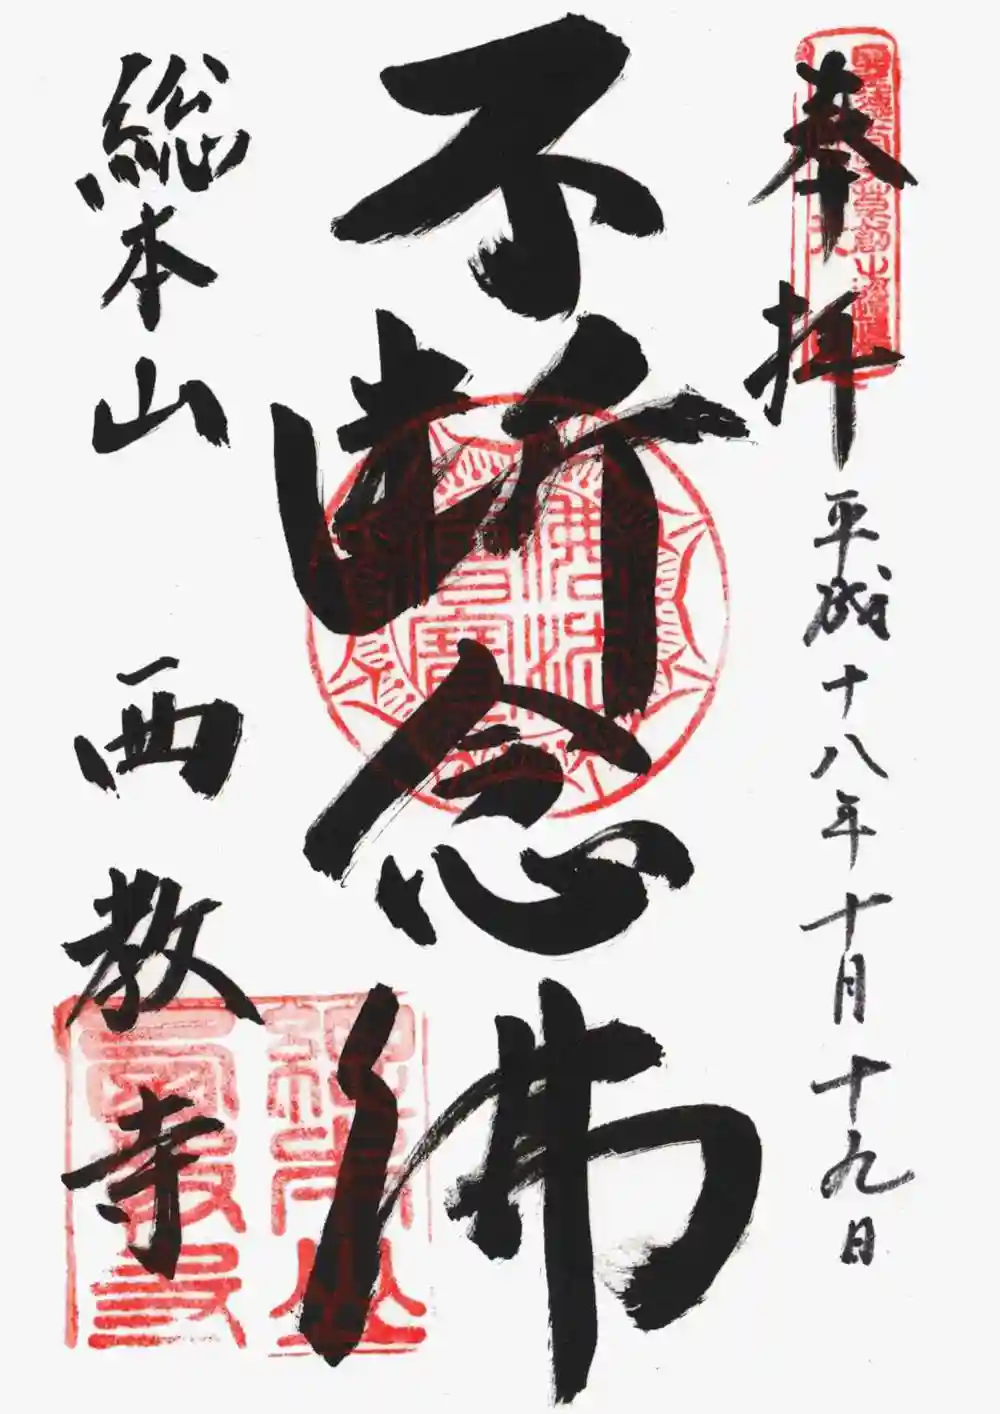 奉拝
平成十八年十月十九日
不断念佛
佛法僧寶
総本山 西教寺